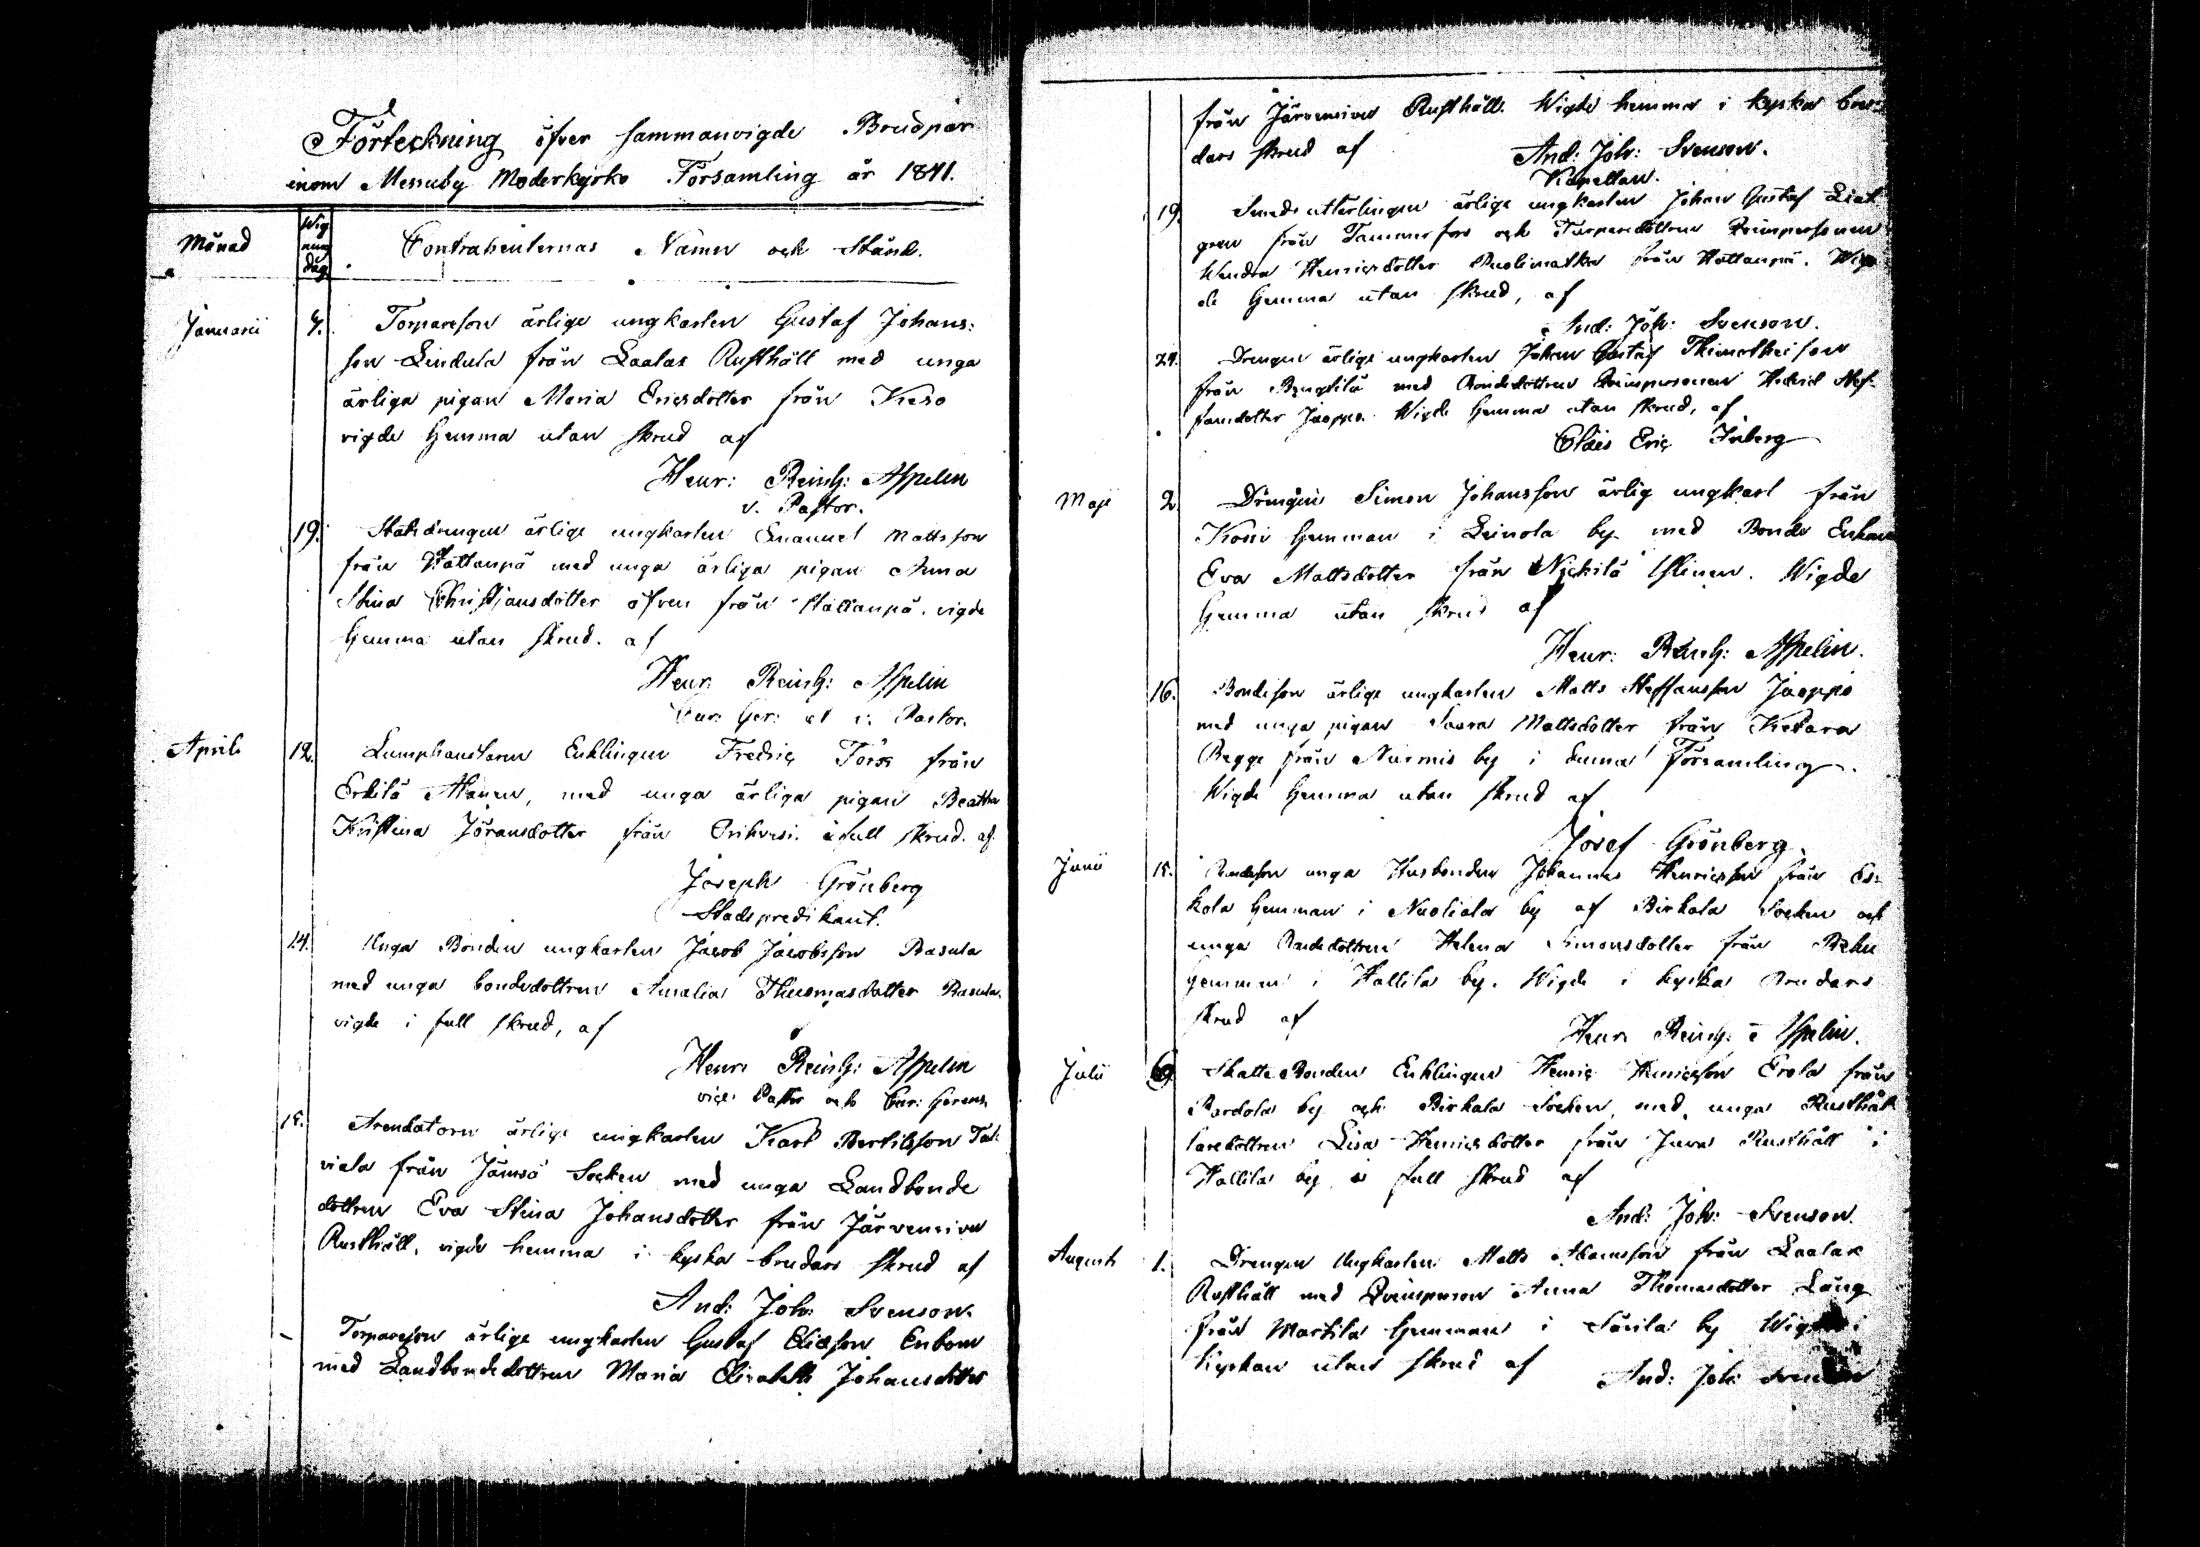 Förteckning öfver sammanvigde Brudpar
inom Messuby Moderkyrko Församling år 1841.
Månad
Wig
ning
dag
Contrahenternas Namn och Stånd.
Januarii 4. Torpareson ärlige ungkarlen Gustaf Johans:
son Lindula från Laalax Rusthåll med unga
ärliga pigan Maria Ericsdotter från Keso
vigde hemma utan skrud af
Henr: Reinh: Aspelin
v. Pastor.
19. Statsdrengen ärlige ungkarlen Emanuel Mattsson
från Hattanpä med unga ärliga pigan Anna
Stina Christjansdotter äfven från Hattanpä. vigde
hemma utan skrud. af
Henr: Reinh: Aspelin
Cur: Ger: et v. Pastor.
Aprill 12. Enklingen Fredric Törs från
Erkilä, med unga ärliga pigan Beatha
Kristina Jöransdotter från i full skrud. af
Joseph Grönberg
Stadspredikant.
14. Unga Bonden ungkarlen Jacob Jacobsson Rasula
med unga bondedottren Amalia Thomasdotter Rasula.
vigde i full skrud, af
Henr: Reinh: Aspelin
vice Pastor och Cur: Gerens
15. Arendatorn ärlige ungkarlen Karl Bertilsson Tal:
viala från Jämsä Socken med unga Landbonde
dottren Eva Stina Johansdotter från Järvensivu
Rusthåll, vigde hemma i kyska brudars skrud af
And: Joh: Svenson.
Torpareson ärlige ungkarlen Gustaf Eliasson Enbom
med Landbondedottren Maria Elisabeth Johansdotter
från Järvensivu Rusthåll. Wigde hemma i kyska bru:
dars skrud af And: Joh: Svenson.
Kapellan.
19. ärlige ungkarlen Johan Gustaf
gren från Tammerfors och Torparedottren Qvinspersonen
Wendla Henricsdotter Puolimatka från Hattanpä. Wig
de hemma utan skrud, af
And: Joh: Svenson.
24. Drengen ärlige ungkarlen Johan Gustaf Thimotheison
från med Bondedottren Qvinspersonen Hedvid Stef:
fansdotter Jaoppo. Wigde hemma utan skrud, af
Claes Eric Inberg
Maji 2. Drengen Simon Johansson ärlig ungkarl från
Kossi hemman i Leinola by med Bonde Enkan
Eva Mattsdotter från Nickilä. Wigde
hemma utan skrud af
Henr: Reinh: Aspelin.
16. Bondeson ärlige ungkarlen Matts Steffansson Jaoppo
med unga pigan Saara Mattsdotter från Ketara
Begge från Nurmis by i denna Församling.
Wigde hemma utan skrud af
Josef Grönberg.
Junii 15. Bondeson unga Husbonden Johannes Henricsson från Es:
kola hemman i Nuoliala by af Birkala Socken och
unga Bondedottren Helena Simonsdotter från
hemman i Hallila by. Wigde i kyska Brudars
skrud af
Henr: Reinh: Aspelin.
Julii Skatte Bonden Enklingen Henric Henricsson Erola från
Pardola by och Birkala Socken, med, unga Rusthål
laredottren Lisa Henricsdotter från Juva Rusthåll i
Hallila by i full skrud af
And: Joh: Svenson.
Augusti 1. Drengen Ungkarlen Matts Adamsson från Laalax
Rusthåll med Qvinsperson Anna Thomasdotter Lång
från Martila hemman i Särila by Wigde i
kyrkan utan skrud af And: Joh: Svenson